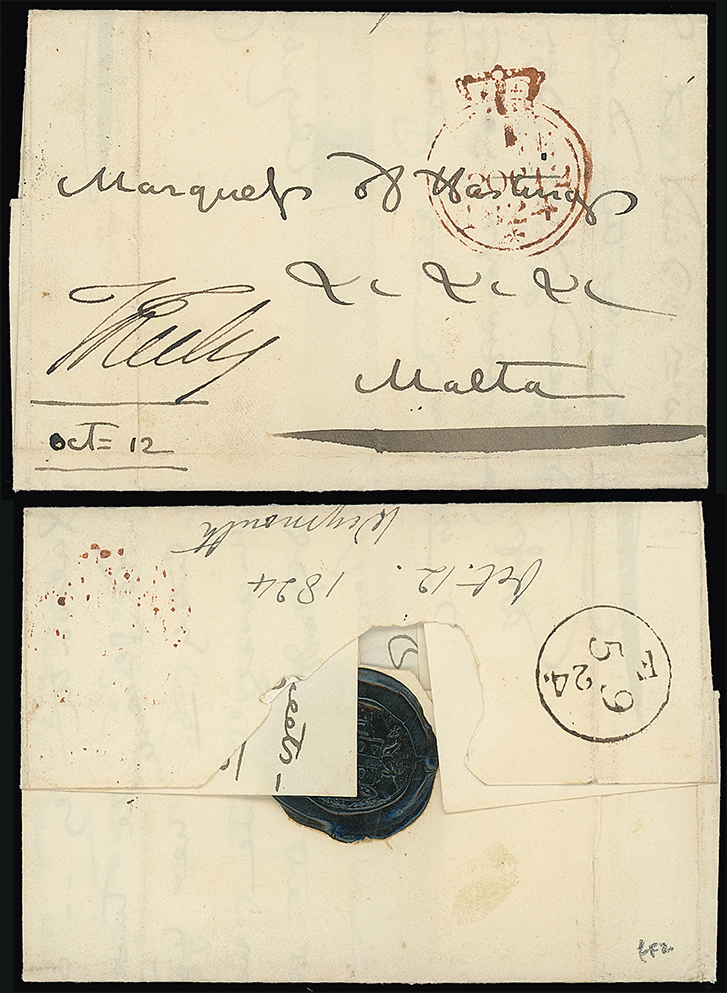 Marquess of Hastings
&c &c &c
Malta
Oct= 12
Weymouth
Oct. 12. 1824
F 9
5
24.